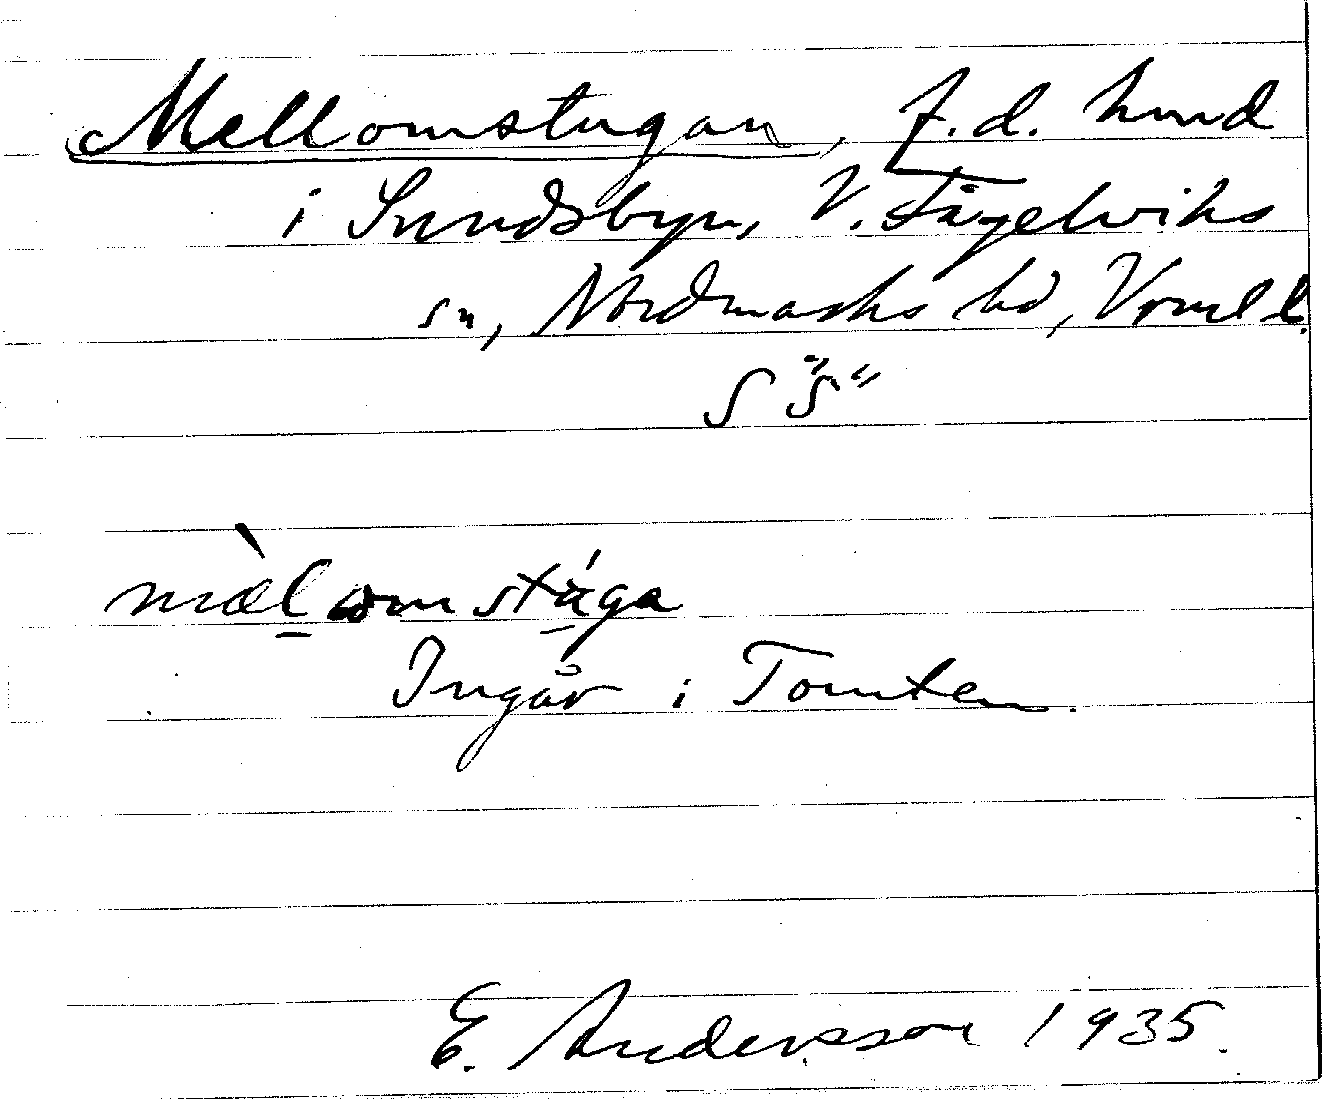 Mellomstugan, f.d. hmd
i Sundsbyn, V. Fågelviks
sn, Nordmarks hd, Vrml l.
S "S"
mæ̀l̠omstú̠ga
Ingår i Tomten.
E. Andersson 1935.